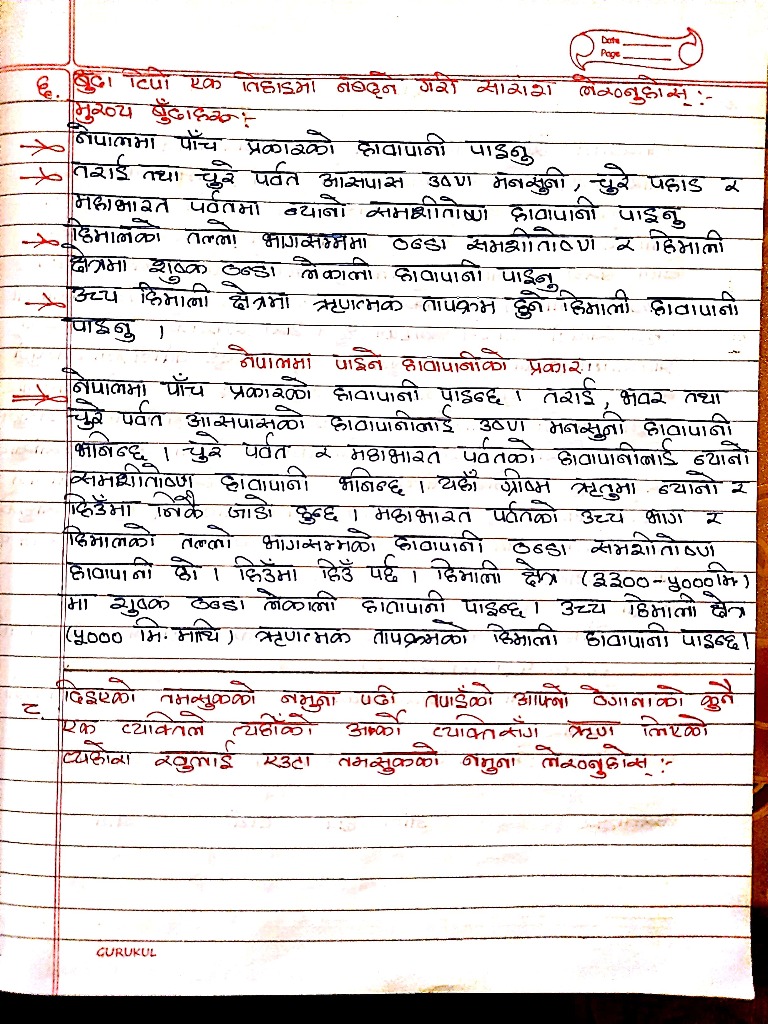 Date
Page
६. बुँदा टिपी एक तिहाइमा नबढ्ने गरी सारांश लेख्नुहोस् :-
मुख्य बुँदाहरू :-
नेपालमा पाँच प्रकारको हावापानी पाइनु
तराई तथा चुरे पर्वत आसपास उष्ण मनसुनी, चुरे पहाड र
महाभारत पर्वतमा न्यानो समशीतोष्ण हावापानी पाइनु
हिमालको तल्लो भागसम्ममा ठण्डा समशीतोष्ण र हिमाली
क्षेत्रमा शुष्क ठण्डा लेकाली हावापानी पाइनु
उच्च हिमाली क्षेत्रमा ऋणत्मक तापक्रम हुने हिमाली हावापानी
पाइनु ।
नेपालमा पाइने हावापानीको प्रकार
नेपालमा पाँच प्रकारको हावापानी पाइन्छ । तराई, भवर तथा
चुरे पर्वत आसपासको हावापानीलाई उष्ण मनसुनी हावापानी
भनिन्छ । चुरे पर्वत र महाभारत पर्वतको हावापानीलाई न्यानो
समशीतोष्ण हावापानी भनिन्छ । यहाँ ग्रीष्म ऋतुमा न्यानो र
हिउँमा निकै जाडो हुन्छ । महाभारत पर्वतको उच्च भाग र
हिमालको तल्लो भागसम्मको हावापानी ठण्डा समशीतोष्ण
हावापानी हो । हिउँमा हिउँ पर्छ । हिमाली क्षेत्र (३३००-५००० मि)
मा शुष्क ठण्डा लेकाली हावापानी पाइन्छ । उच्च हिमाली क्षेत्र
(५००० मि. माथि) ऋणत्मक तापक्रमको हिमाली हावापानी पाइन्छ ।
८. दिइएको तमसुकको नमुना पढी तपाईंको आफ्नो ठेगानाको कुनै
एक व्यक्तिले त्यहीँको अर्को व्यक्तिसँग ऋण लिएको
व्यहोरा खुलाई एउटा तमसुकको नमुना लेख्नुहोस् :-
GURUKUL